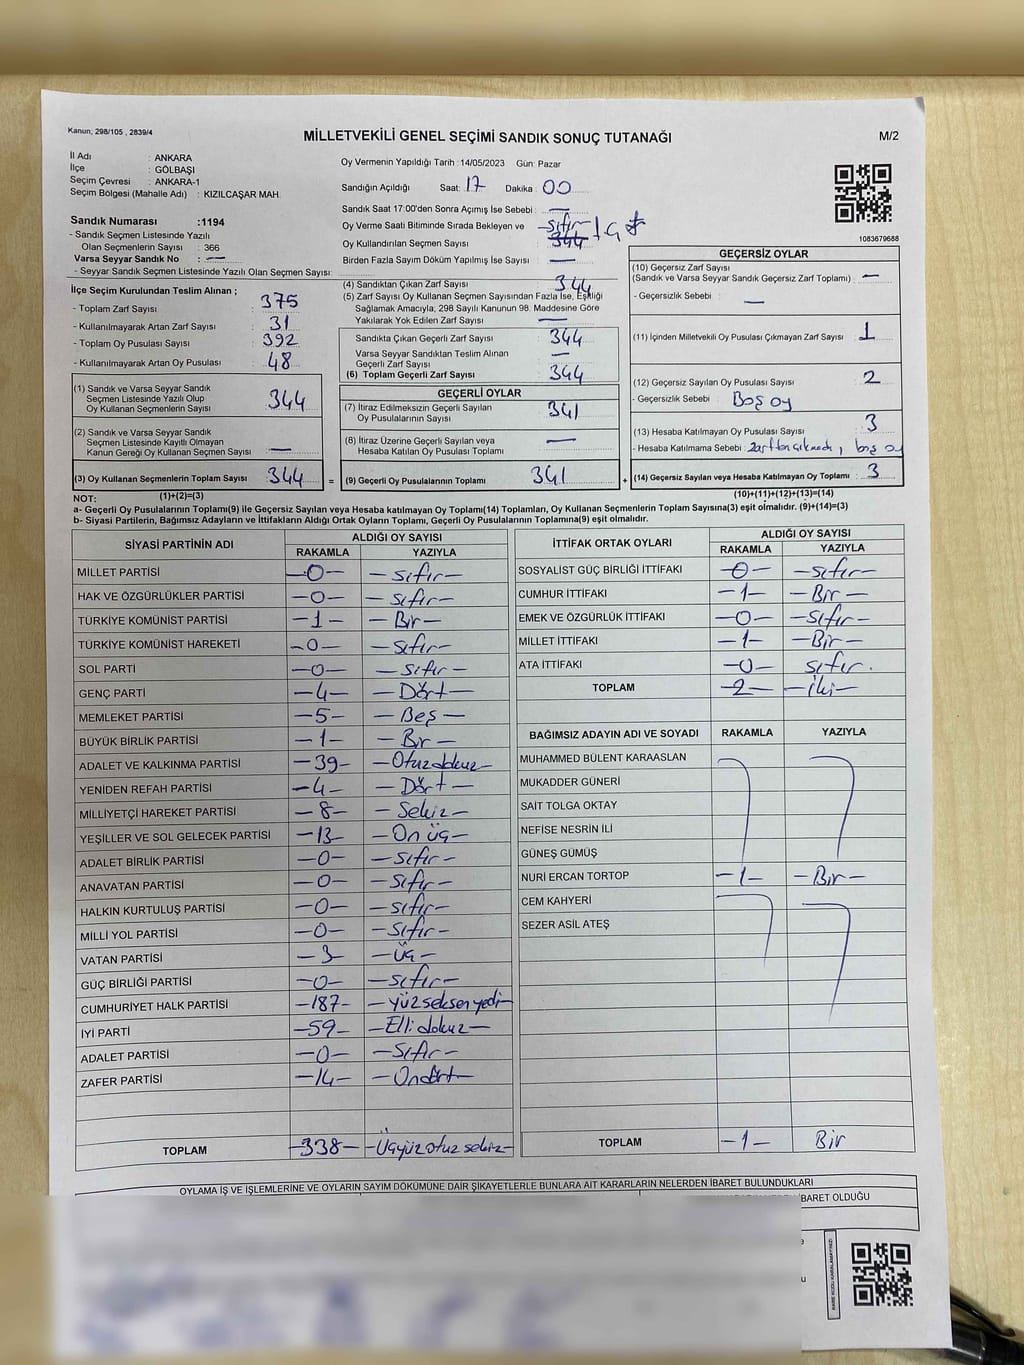 Kanun, 298/105 , 2839/4
MİLLETVEKİLİ GENEL SEÇİMİ SANDIK SONUÇ TUTANAĞI
M/2
İl Adı : ANKARA
İlçe : GÖLBAŞI
Seçim Çevresi : ANKARA-1
Seçim Bölgesi (Mahalle Adı) : KIZILCAŞAR MAH.
Sandık Numarası :1194
- Sandık Seçmen Listesinde Yazılı
Olan Seçmenlerin Sayısı : 366
Varsa Seyyar Sandık No : —
- Seyyar Sandık Seçmen Listesinde Yazılı Olan Seçmen Sayısı:
Oy Vermenin Yapıldığı Tarih :14/05/2023 Gün: Pazar
Sandığın Açıldığı Saat: 17 Dakika : 00
Sandık Saat 17:00'den Sonra Açımış İse Sebebi : —
Oy Verme Saati Bitiminde Sırada Bekleyen ve —sıfır—
Oy Kullandırılan Seçmen Sayısı : 344
Birden Fazla Sayım Döküm Yapılmış İse Sayısı : —
1083679688
İlçe Seçim Kurulundan Teslim Alınan ;
- Toplam Zarf Sayısı : 375
- Kullanılmayarak Artan Zarf Sayısı : 31
- Toplam Oy Pusulası Sayısı : 392
- Kullanılmayarak Artan Oy Pusulası : 48
(1) Sandık ve Varsa Seyyar Sandık
Seçmen Listesinde Yazılı Olup
Oy Kullanan Seçmenlerin Sayısı : 344
(2) Sandık ve Varsa Seyyar Sandık
Seçmen Listesinde Kayıtlı Olmayan
Kanun Gereği Oy Kullanan Seçmen Sayısı : —
(3) Oy Kullanan Seçmenlerin Toplam Sayısı : 344 =
(4) Sandıktan Çıkan Zarf Sayısı : 344
(5) Zarf Sayısı Oy Kullanan Seçmen Sayısından Fazla İse, Eşitliği
Sağlamak Amacıyla, 298 Sayılı Kanunun 98. Maddesine Göre
Yakılarak Yok Edilen Zarf Sayısı : —
Sandıkta Çıkan Geçerli Zarf Sayısı : 344
Varsa Seyyar Sandıktan Teslim Alınan
Geçerli Zarf Sayısı : —
(6) Toplam Geçerli Zarf Sayısı : 344
GEÇERLİ OYLAR
(7) İtiraz Edilmeksizin Geçerli Sayılan
Oy Pusulalarının Sayısı : 341
(8) İtiraz Üzerine Geçerli Sayılan veya
Hesaba Katılan Oy Pusulası Toplamı : —
(9) Geçerli Oy Pusulalarının Toplamı : 341 +
GEÇERSİZ OYLAR
(10) Geçersiz Zarf Sayısı
(Sandık ve Varsa Seyyar Sandık Geçersiz Zarf Toplamı) : —
- Geçersizlik Sebebi : —
(11) İçinden Milletvekili Oy Pusulası Çıkmayan Zarf Sayısı : 1
(12) Geçersiz Sayılan Oy Pusulası Sayısı : 2
- Geçersizlik Sebebi : Boş oy
(13) Hesaba Katılmayan Oy Pusulası Sayısı : 3
- Hesaba Katılmama Sebebi : zarftan çıkmadı, boş oy
(14) Geçersiz Sayılan veya Hesaba Katılmayan Oy Toplamı : 3
NOT: (1)+(2)=(3) (10)+(11)+(12)+(13)=(14)
a- Geçerli Oy Pusulalarının Toplamı(9) ile Geçersiz Sayılan veya Hesaba katılmayan Oy Toplamı(14) Toplamları, Oy Kullanan Seçmenlerin Toplam Sayısına(3) eşit olmalıdır. (9)+(14)=(3)
b- Siyasi Partilerin, Bağımsız Adayların ve İttifakların Aldığı Ortak Oyların Toplamı, Geçerli Oy Pusulalarının Toplamına(9) eşit olmalıdır.
SİYASİ PARTİNİN ADI ALDIĞI OY SAYISI
RAKAMLA YAZIYLA
MİLLET PARTİSİ —0— —sıfır—
HAK VE ÖZGÜRLÜKLER PARTİSİ —0— —sıfır—
TÜRKİYE KOMÜNİST PARTİSİ —1— —Bir—
TÜRKİYE KOMÜNİST HAREKETİ —0— —sıfır—
SOL PARTİ —0— —sıfır—
GENÇ PARTİ —4— —Dört—
MEMLEKET PARTİSİ —5— —Beş—
BÜYÜK BİRLİK PARTİSİ —1— —Bir—
ADALET VE KALKINMA PARTİSİ —39— —Otuzdokuz—
YENİDEN REFAH PARTİSİ —4— —Dört—
MİLLİYETÇİ HAREKET PARTİSİ —8— —Sekiz—
YEŞİLLER VE SOL GELECEK PARTİSİ —13— —On üç—
ADALET BİRLİK PARTİSİ —0— —sıfır—
ANAVATAN PARTİSİ —0— —sıfır—
HALKIN KURTULUŞ PARTİSİ —0— —sıfır—
MİLLİ YOL PARTİSİ —0— —sıfır—
VATAN PARTİSİ —3— —üç—
GÜÇ BİRLİĞİ PARTİSİ —0— —sıfır—
CUMHURİYET HALK PARTİSİ —187— —Yüzseksenyedi—
İYİ PARTİ —59— —Ellidokuz—
ADALET PARTİSİ —0— —sıfır—
ZAFER PARTİSİ —14— —Ondört—
TOPLAM —338— —Üçyüzotuzsekiz—
İTTİFAK ORTAK OYLARI ALDIĞI OY SAYISI
RAKAMLA YAZIYLA
SOSYALİST GÜÇ BİRLİĞİ İTTİFAKI —0— —sıfır—
CUMHUR İTTİFAKI —1— —Bir—
EMEK VE ÖZGÜRLÜK İTTİFAKI —0— —sıfır—
MİLLET İTTİFAKI —1— —Bir—
ATA İTTİFAKI —0— sıfır.
TOPLAM —2— —İki—
BAĞIMSIZ ADAYIN ADI VE SOYADI RAKAMLA YAZIYLA
MUHAMMED BÜLENT KARAASLAN
MUKADDER GÜNERİ
SAİT TOLGA OKTAY
NEFİSE NESRİN İLİ
GÜNEŞ GÜMÜŞ
NURİ ERCAN TORTOP —1— —Bir—
CEM KAHYERİ
SEZER ASİL ATEŞ
TOPLAM —1— Bir
OYLAMA İŞ VE İŞLEMLERİNE VE OYLARIN SAYIM DÖKÜMÜNE DAİR ŞİKAYETLERLE BUNLARA AİT KARARLARIN NELERDEN İBARET BULUNDUKLARI
İBARET OLDUĞU